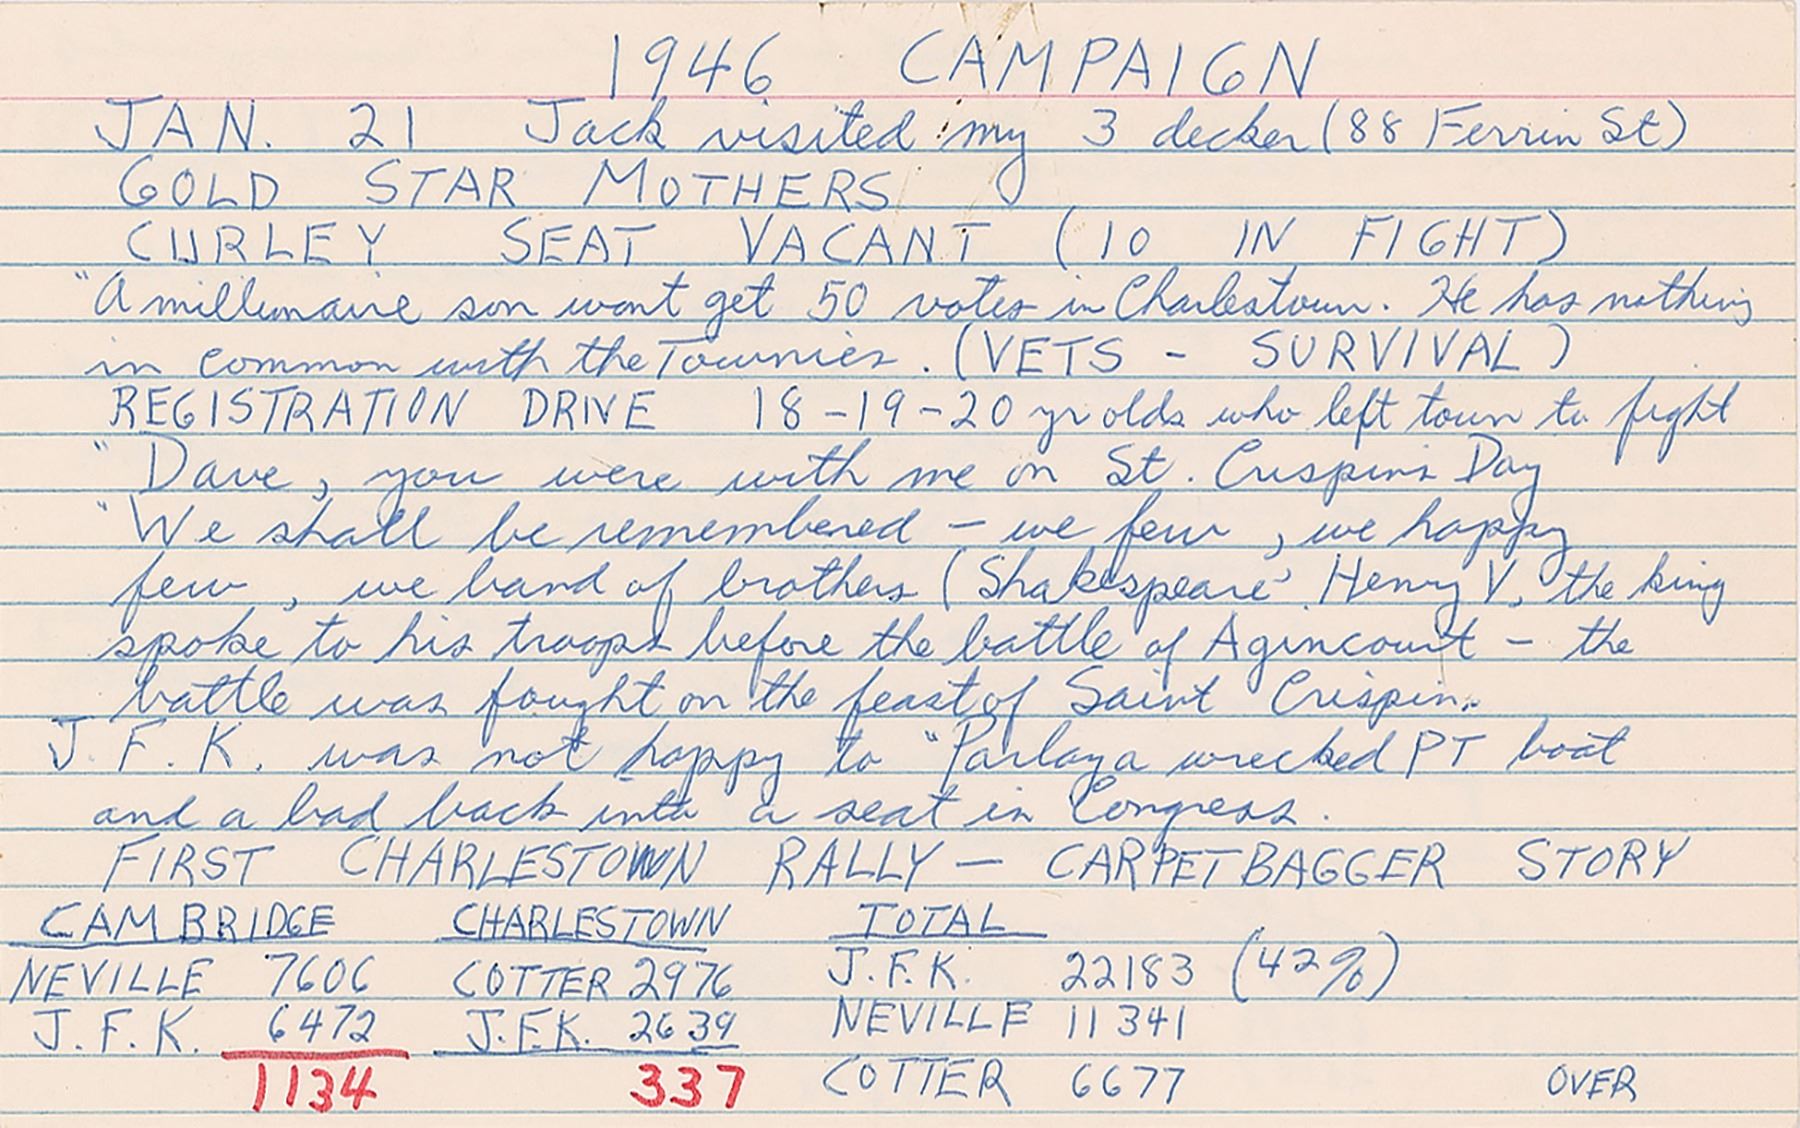 1946 CAMPAIGN
JAN. 21 Jack visited my 3 decker (88 Ferrin St)
GOLD STAR MOTHERS
CURLEY SEAT VACANT (10 IN FIGHT)
"A millionaire son wont get 50 votes in Charlestown. He has nothing
in common with the Townies. (VETS - SURVIVAL)
REGISTRATION DRIVE 18-19-20 yr olds who left town to fight
"Dave, you were with me on St. Crispins Day
"We shall be remembered - we few, we happy
few, we band of brothers (Shakespeare' Henry V, the king
spoke to his troops before the battle of Agincourt - the
battle was fought on the feast of Saint Crispin.
J.F.K. was not happy to "Parlay a wrecked PT boat
and a bad back into a seat in Congress.
FIRST CHARLESTOWN RALLY - CARPETBAGGER STORY
CAMBRIDGE CHARLESTOWN TOTAL
NEVILLE 7606 COTTER 2976 J.F.K. 22183 (42%)
J.F.K. 6472 J.F.K. 2639 NEVILLE 11341
1134 337 COTTER 6677 OVER